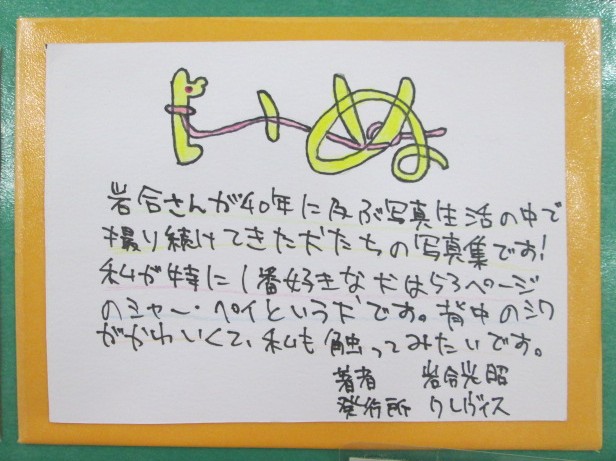 いぬ
岩合さんが40年に及ぶ写真生活の中で
撮り続けてきた犬たちの写真集です!
私が特に1番好きな犬は53ページ
のシャー・ペイという犬です。背中のシワ
がかわいくて、私も触ってみたいです。
著者 岩合光昭
発行所 クレヴィス